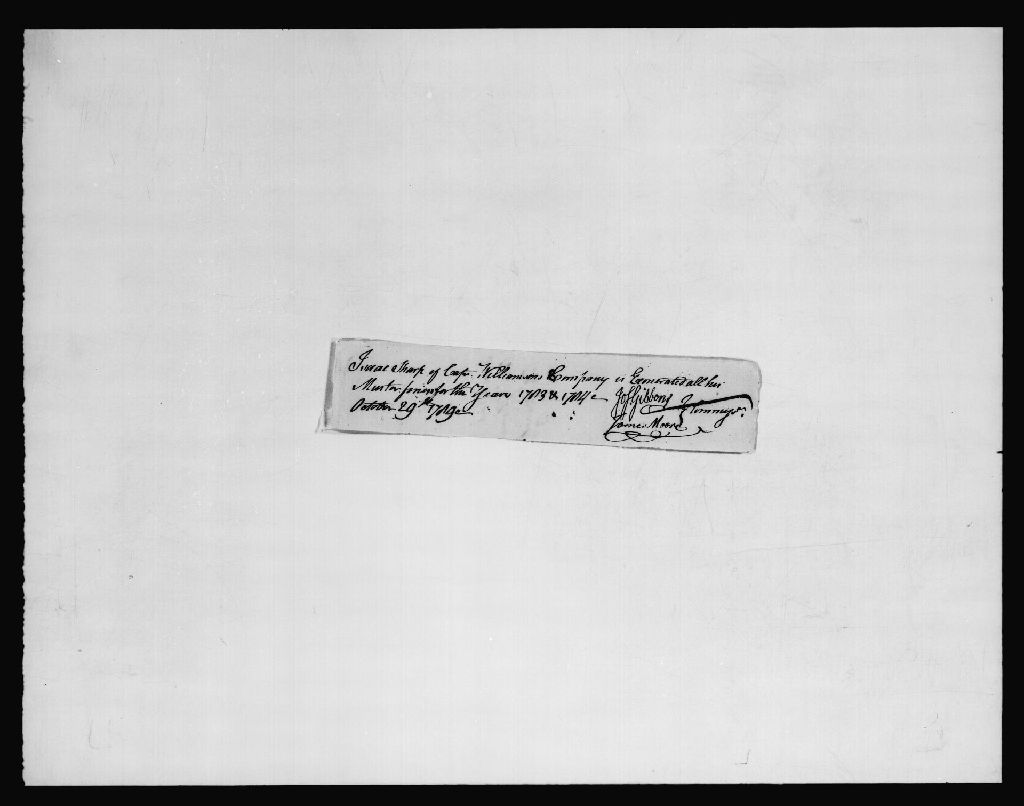 Isaac Sharp of Capt. Williamsons Company is Exonerated all his
Muster fines for the Years 1783 & 1784
October 29th 1789
Jos Gibbons
James Moore